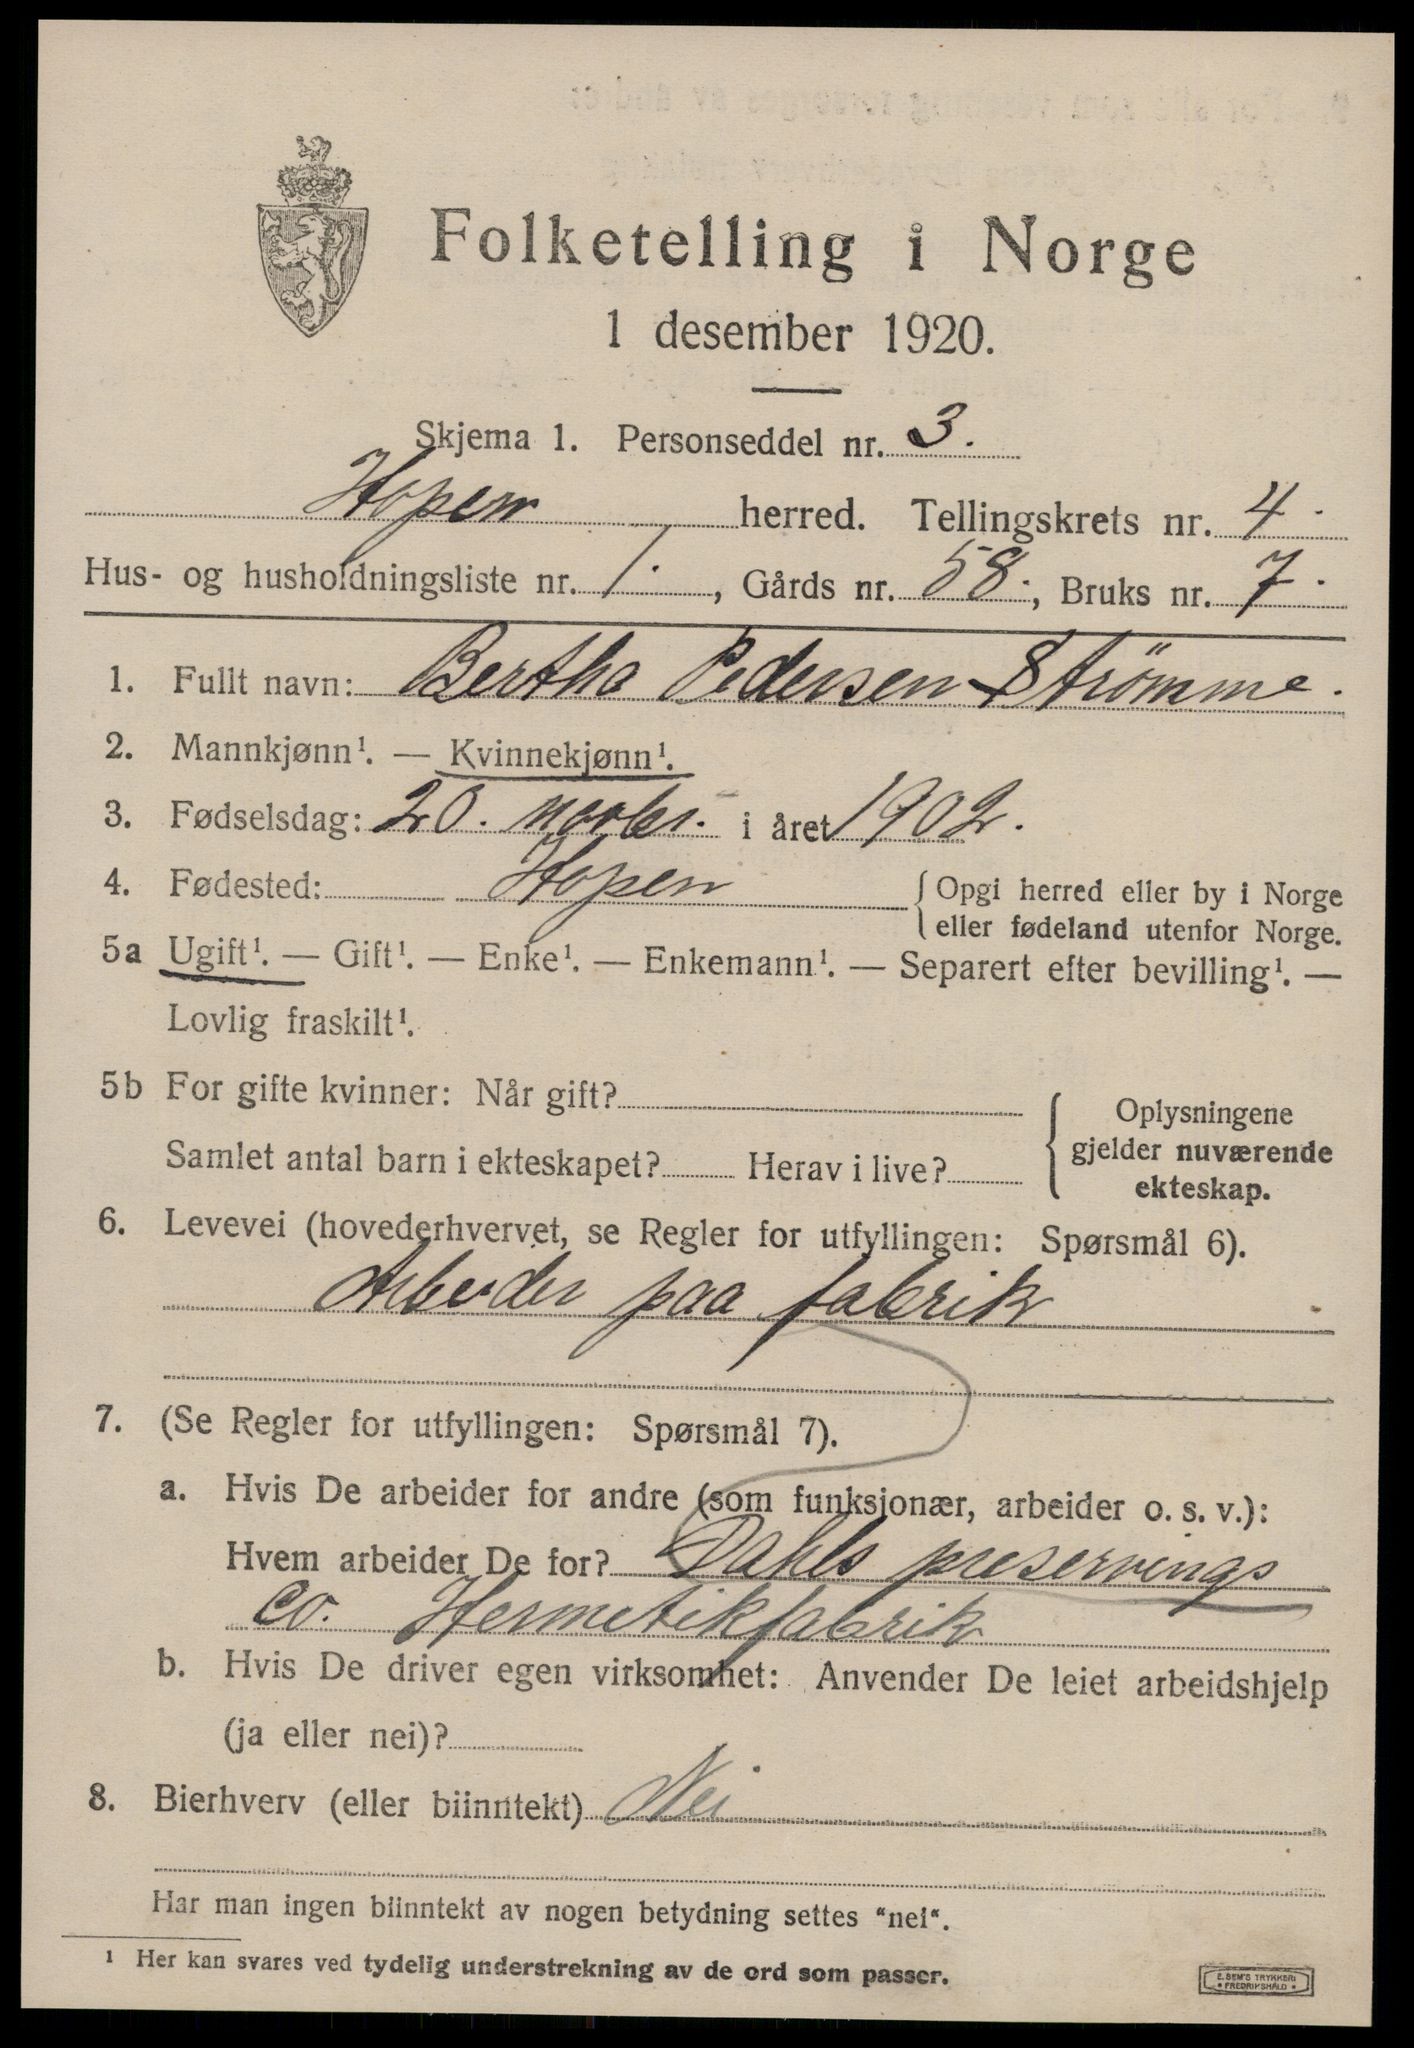 Folketelling i Norge
1 desember 1920.
Skjema 1. Personseddel nr. 3.
Hopen herred. Tellingskrets nr. 4.
Hus- og husholdningsliste nr. 1., Gårds nr. 58., Bruks nr. 7.
1. Fullt navn: Bertha Pedersen Strömme.
2. Mannkjønn¹. — Kvinnekjønn¹.
3. Fødselsdag: 20. novbr. i året 1902.
4. Fødested: Hopen { Opgi herred eller by i Norge
eller fødeland utenfor Norge.
5a Ugift¹. — Gift¹. — Enke¹. — Enkemann¹. — Separert efter bevilling¹. —
Lovlig fraskilt¹.
5b For gifte kvinner: Når gift?
Samlet antal barn i ekteskapet? Herav i live?
Oplysningene
gjelder nuværende
ekteskap.
6. Levevei (hovederhvervet, se Regler for utfyllingen: Spørsmål 6).
Arbeider paa fabrik
7. (Se Regler for utfyllingen: Spørsmål 7).
a. Hvis De arbeider for andre (som funksjonær, arbeider o. s. v.):
Hvem arbeider De for? Dahls preservings
Co. Hermetikfabrik
b. Hvis De driver egen virksomhet: Anvender De leiet arbeidshjelp
(ja eller nei)?
8. Bierhverv (eller biinntekt) Nei
Har man ingen biinntekt av nogen betydning settes "nei".
¹ Her kan svares ved tydelig understrekning av de ord som passer.
E. SEM'S TRYKKERI
• FREDRIKSHALD •